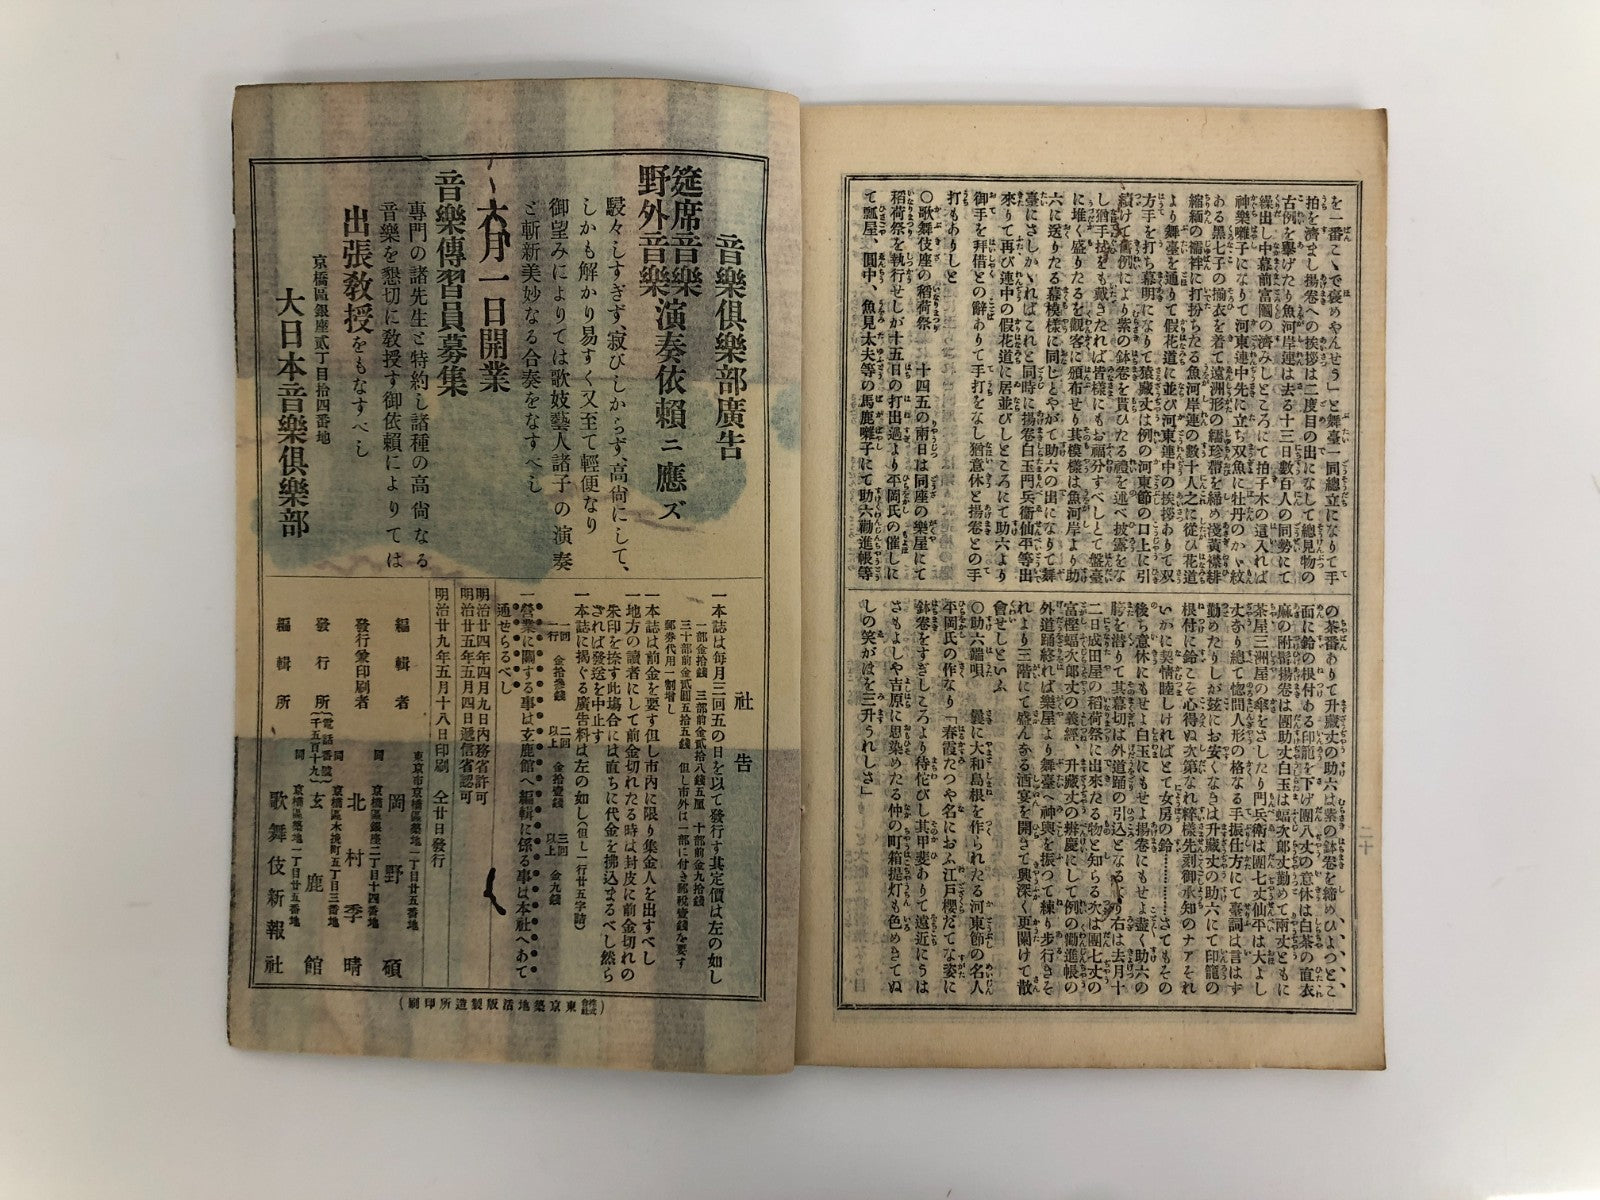 を一番こゝで寝めやんせう」と舞臺一同總立になりて手
拍を濟まし揚卷への挨拶は二度目の出になして總見物の
古例を擧げたり魚河岸連は去る十三日數百人の同勢にて
繰出し中幕前富國の濟みしところにて拍子木の這入れば
神樂囃子になりて河東連中先に立ち双魚に牡丹のかゝ紋
ある黑七子の揃衣を着て遠洲形の繻珍帶を締め淺黃襟緋
縮緬の襦袢に打扮ちたる魚河岸連の數十人之に從ひ花道
より舞臺を通りて假花道に並び河東連中の挨拶ありて双
方手を打ち幕明になりて猿藏丈は例の河東節の口上に引
續けて舊例により紫の鉢卷を貰ひたる禮を述べ披露をな
し猶手拭をも戴きたれば皆樣にもお福分すべしとて盤臺
に堆く盛りたるを觀客に頒布せり其模樣は魚河岸より助
六に送りたる幕模樣に同じとやがて助六の出になりて舞
臺にさしかゝればこれと同時に揚卷白玉門兵衞仙平等出
來りて再び連中の假花道に居並びしところにて助六より
御手を拜借との辭ありて手打なし猶意休と揚卷との手
打もありしと
○歌舞伎座の稻荷祭　十四五の兩日は同座の樂屋にて
稻荷祭を執行せしが十五日の打出過より平岡氏の催しに
て瓢屋、圓中、魚見太夫等の馬鹿囃子にて助六勸進帳等
の茶番ありて升藏丈の助六は紫の鉢卷を締めひよつとこ
面に鈴の根付ある印籠を下げ團八丈の意休は白茶の直衣
麻の附髯揚卷は團助丈白玉は蝠次郎丈勤めて兩丈ともに
茶屋三洲屋の傘をさしたり門兵衞は團七丈仙平は大よし
丈杏も總て惚問人形の格なる手振仕方にて臺詞は言はず
勤めたりしが玆にお安くなきは升藏丈の助六にて印籠の
根付に鈴こそ心得ぬ次第なれ粹樣先刻御承知のナアそれ
いかに契情睦しければとて女房の鈴…………さてもその
後ち意休にもせよ白玉にもせよ揚卷にもせよ盡く助六の
胯を潛りて其幕切は外道踊の引込となるより右は去月十
二日成田屋の稻荷祭に出來たる物と知らる次は團七丈の
富樫蝠次郎丈の義經、升藏丈の辨慶にして例の勸進帳の
外道踊終れば樂屋より舞臺へ神輿を振つて練り步行きそ
れより三階にて盛んなる酒宴を開きて興深く更闌けて散
會せしといふ
○助六端唄　曩に大和島根を作られたる河東節の名人
平岡氏の作なり「春霞たつや名におふ江戶櫻だてな姿に
鉢卷をすぎしころより待佗びし其甲斐ありて遠近にうは
さもよしや吉原に思染めたる仲の町箱提灯も色めきてぬ
しの笑がほを三升うれしさ」
二十
音樂俱樂部廣告
筵席音樂
野外音樂
演奏依賴ニ應ズ
騷々しすぎず、寂びしからず、高尙にして、
しかも解かり易すく又至て輕便なり
御望みによりては歌妓藝人諸子の演奏
と斬新美妙なる合奏をなすべし
六月一日開業
音樂傳習員募集
專門の諸先生と特約し諸種の高尙なる
音樂を懇切に敎授す御依賴によりては
出張敎授をもなすべし
京橋區銀座貳丁目拾四番地
大日本音樂俱樂部
社告
一本誌は每月三回五の日を以て發行す其定價は左の如し
一部金拾錢　三部前金貳拾八錢五厘　十部前金九拾錢
三十部前金貳圓五拾五錢　但し市外は一部に付き郵稅壹錢を要す
郵券代用一割增し
一本誌は前金を要す但し市內に限り集金人を出すべし
一地方の讀者にして前金切れたる時は封皮に前金切れの
朱印を捺す此塲合には直ちに代金を拂込まるべし然ら
ざれば發送を中止す
一本誌に揭ぐる廣告料は左の如し（但し一行廿五字詰）
一回一行　金拾參錢　二回以上　金拾壹錢　三回以上　金九錢
一營業に關する事は玄鹿館へ編輯に係る事は本社へあて
通せらるべし
明治廿四年四月九日內務省許可
明治廿五年五月四日遞信省認可
明治廿九年五月十八日印刷　仝廿日發行
編輯者　東京市京橋區築地一丁目廿五番地　岡野碩
發行兼印刷者　同京橋區銀座二丁目十四番地　北村季晴
發行所　（電話番號千五百十九）　同京橋區木挽町五丁目三番地　玄鹿館
編輯所　同京橋區築地一丁目廿五番地　歌舞伎新報社
（株式會社東京築地活版製造所印刷）